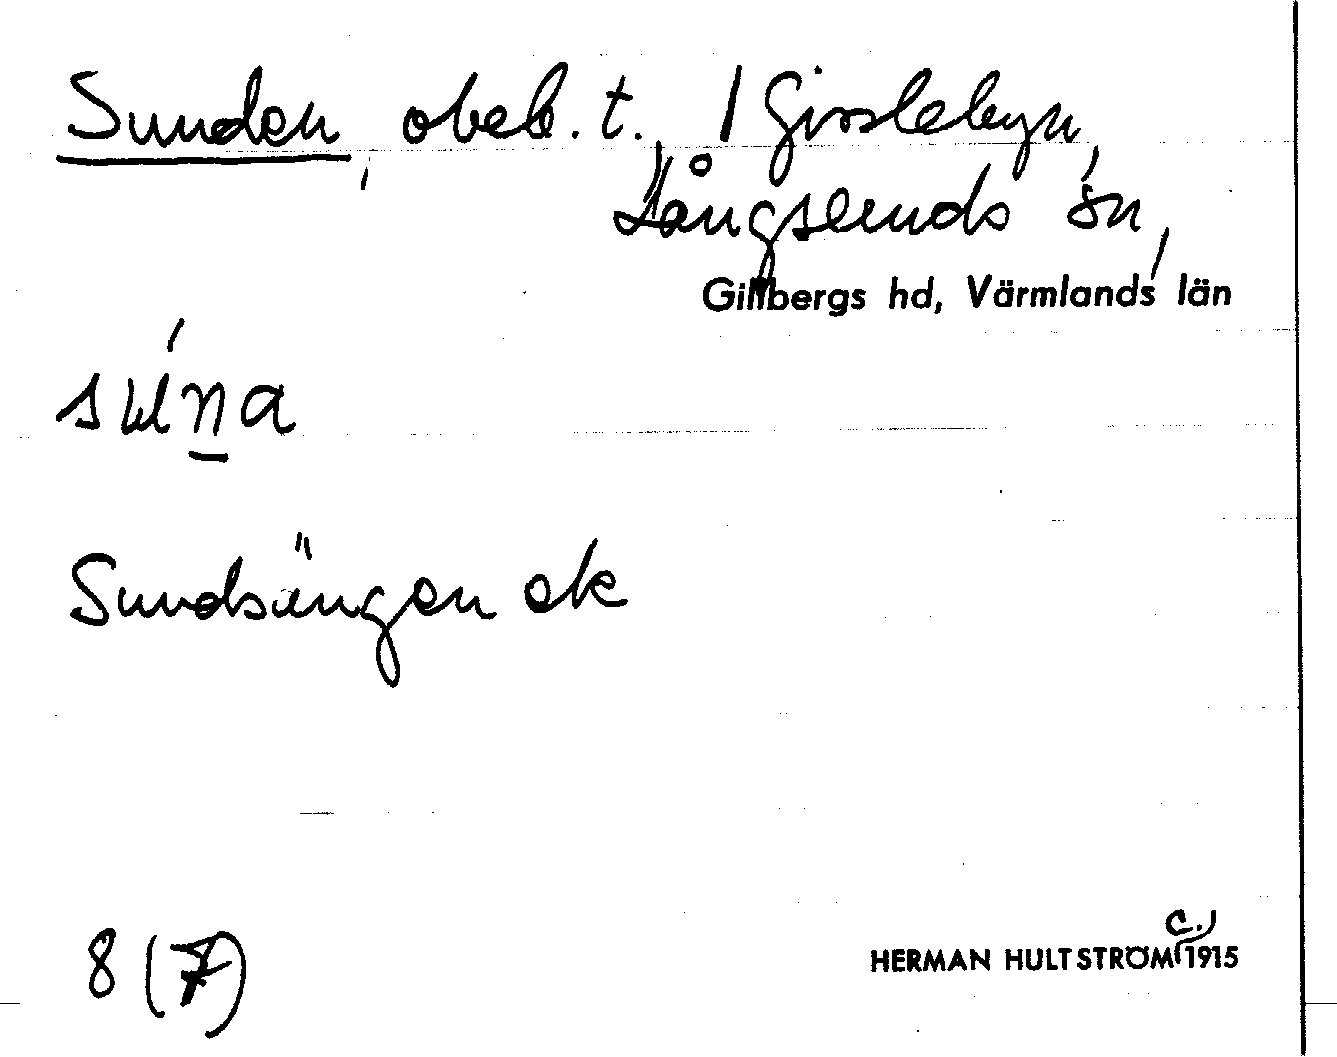 Sunden, obeb. t., / Gisslebyn,
Långseruds sn,
Gillbergs hd, Värmlands län
Sundsängen ok
8 (7)
HERMAN HULTSTRÖM c. 1915